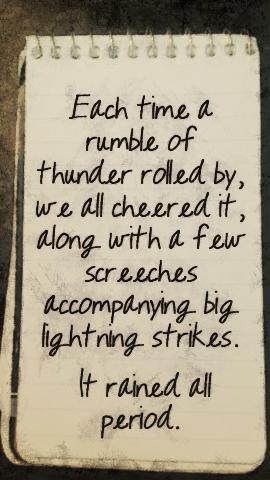 Each time a
rumble of
thunder rolled by,
we all cheered it,
along with a few
screeches
accompanying big
lightning strikes.
It rained all
period.